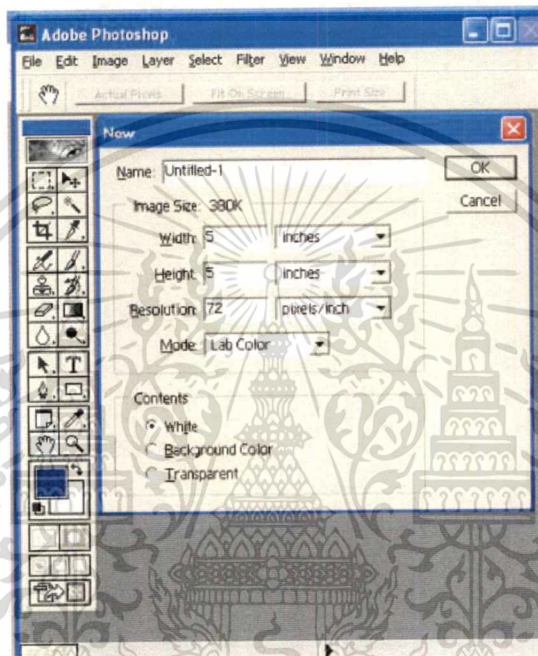 Adobe Photoshop
File Edit Image Layer Select Filter View Window Help
Actual Pixels Fit On Screen Print Size
New
Name: Untitled-1 OK
Image Size: 380K Cancel
Width: 5 inches
Height: 5 inches
Resolution: 72 pixels/inch
Mode: Lab Color
Contents
White
Background Color
Transparent
T